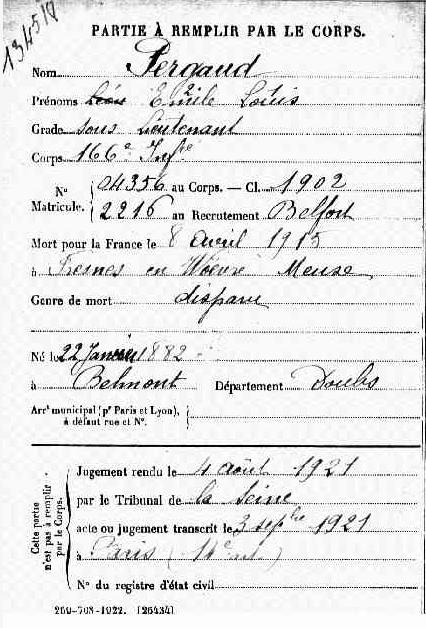 134518
PARTIE À REMPLIR PAR LE CORPS.
Nom Pergaud
Prénoms Léon Emile Louis
Grade sous Lieutenant
Corps 166e Infrie
No Matricule. 04356 au Corps. — Cl. 1902
2216 au Recrutement Belfort
Mort pour la France le 8 avril 1915
à Fresnes en Woevre Meuse
Genre de mort disparu
Né le 22 Janvier 1882
à Belmont Département Doubs
Arrt municipal (pr Paris et Lyon),
à défaut rue et No.
Cette partie n'est pas à remplir par le Corps.
Jugement rendu le 4 août 1921
par le Tribunal de la Seine
acte ou jugement transcrit le 3 sepbre 1921
à Paris (14e art)
No du registre d'état civil
269-708-1922. [26434]